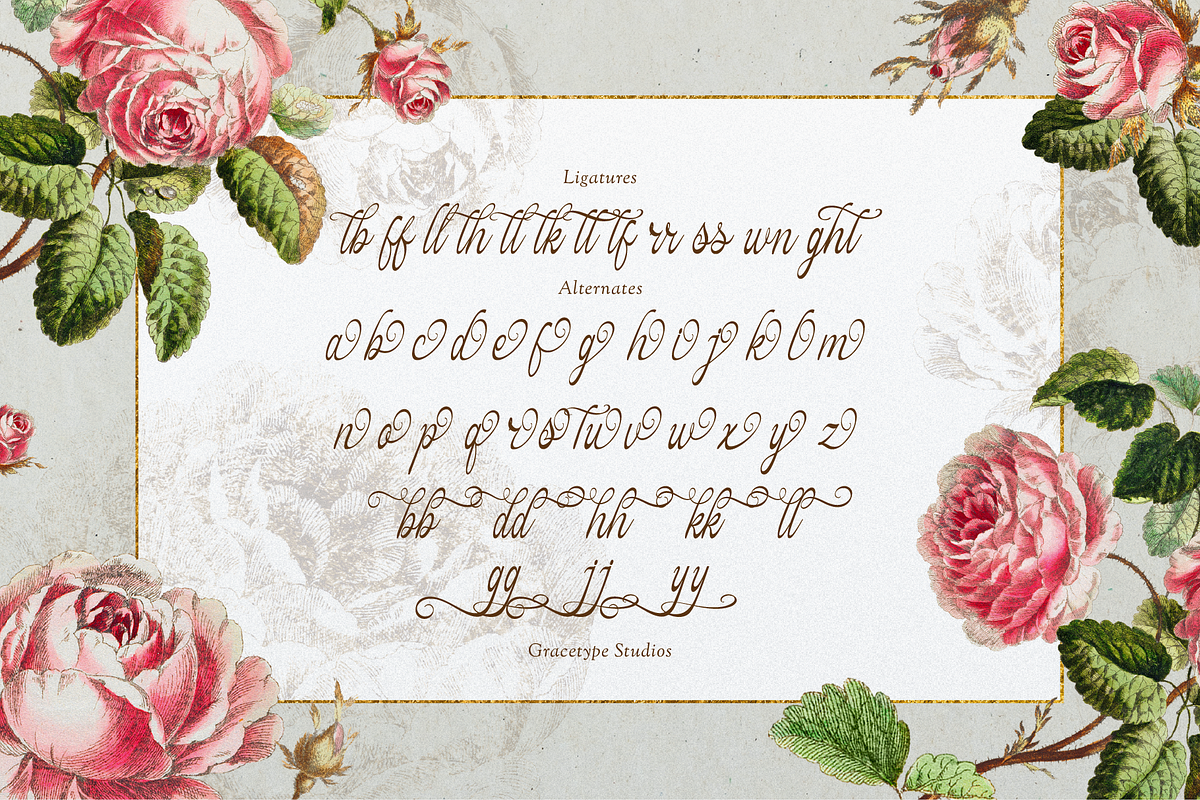 Ligatures
tb ff ll th tl tk tt tf rr ss wn ght
Alternates
a b c d e f g h i j k l m
n o p q r s t u v w x y z
bb dd hh kk ll
gg jj yy
Gracetype Studios